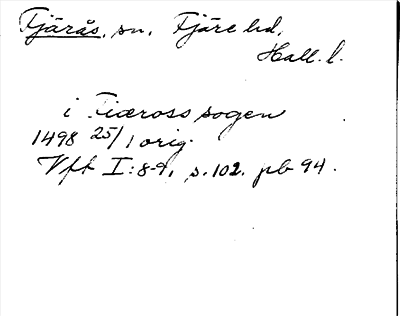 Fjärås, sn, Fjäre hd,
Hall. l.
i Fiæross sogen
1498 25/1 orig.
Vft I:8-9, s.102. pb 94.